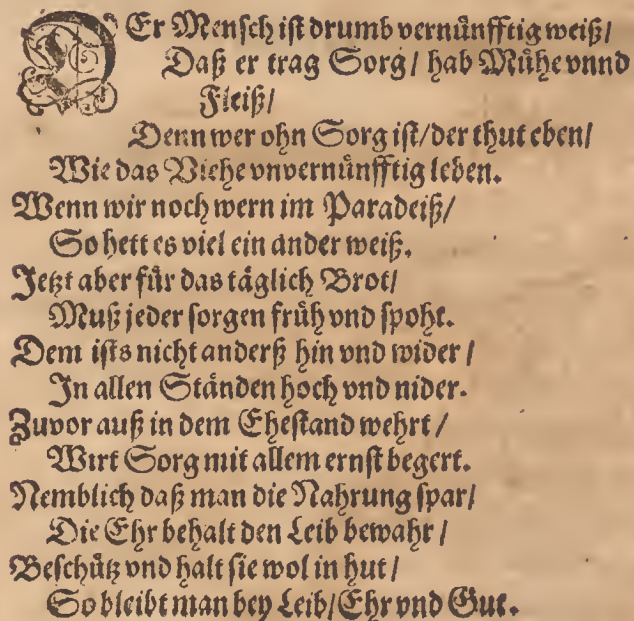 DEr Mensch ist drumb vernůnfftig weiß/
Daß er trag Sorg/ hab Můhe vnnd
Fleiß/
Denn wer ohn Sorg ist/der thut eben/
Wie das Viehe vnvernůnfftig leben.
Wenn wir noch wern im Paradeiß/
So hett es viel ein ander weiß.
Jetzt aber fůr das täglich Brot/
Muß jeder sorgen frůh vnd spoht.
Dem ists nicht anderß hin vnd wider/
In allen Ständen hoch vnd nider.
Zuvor auß in dem Ehestand wehrt/
Wirt Sorg mit allem ernst begert.
Nemblich daß man die Nahrung spar/
Die Ehr behalt den Leib bewahr/
Beschůtz vnd halt sie wol in hut/
So bleibt man bey Leib/Ehr vnd Gut.